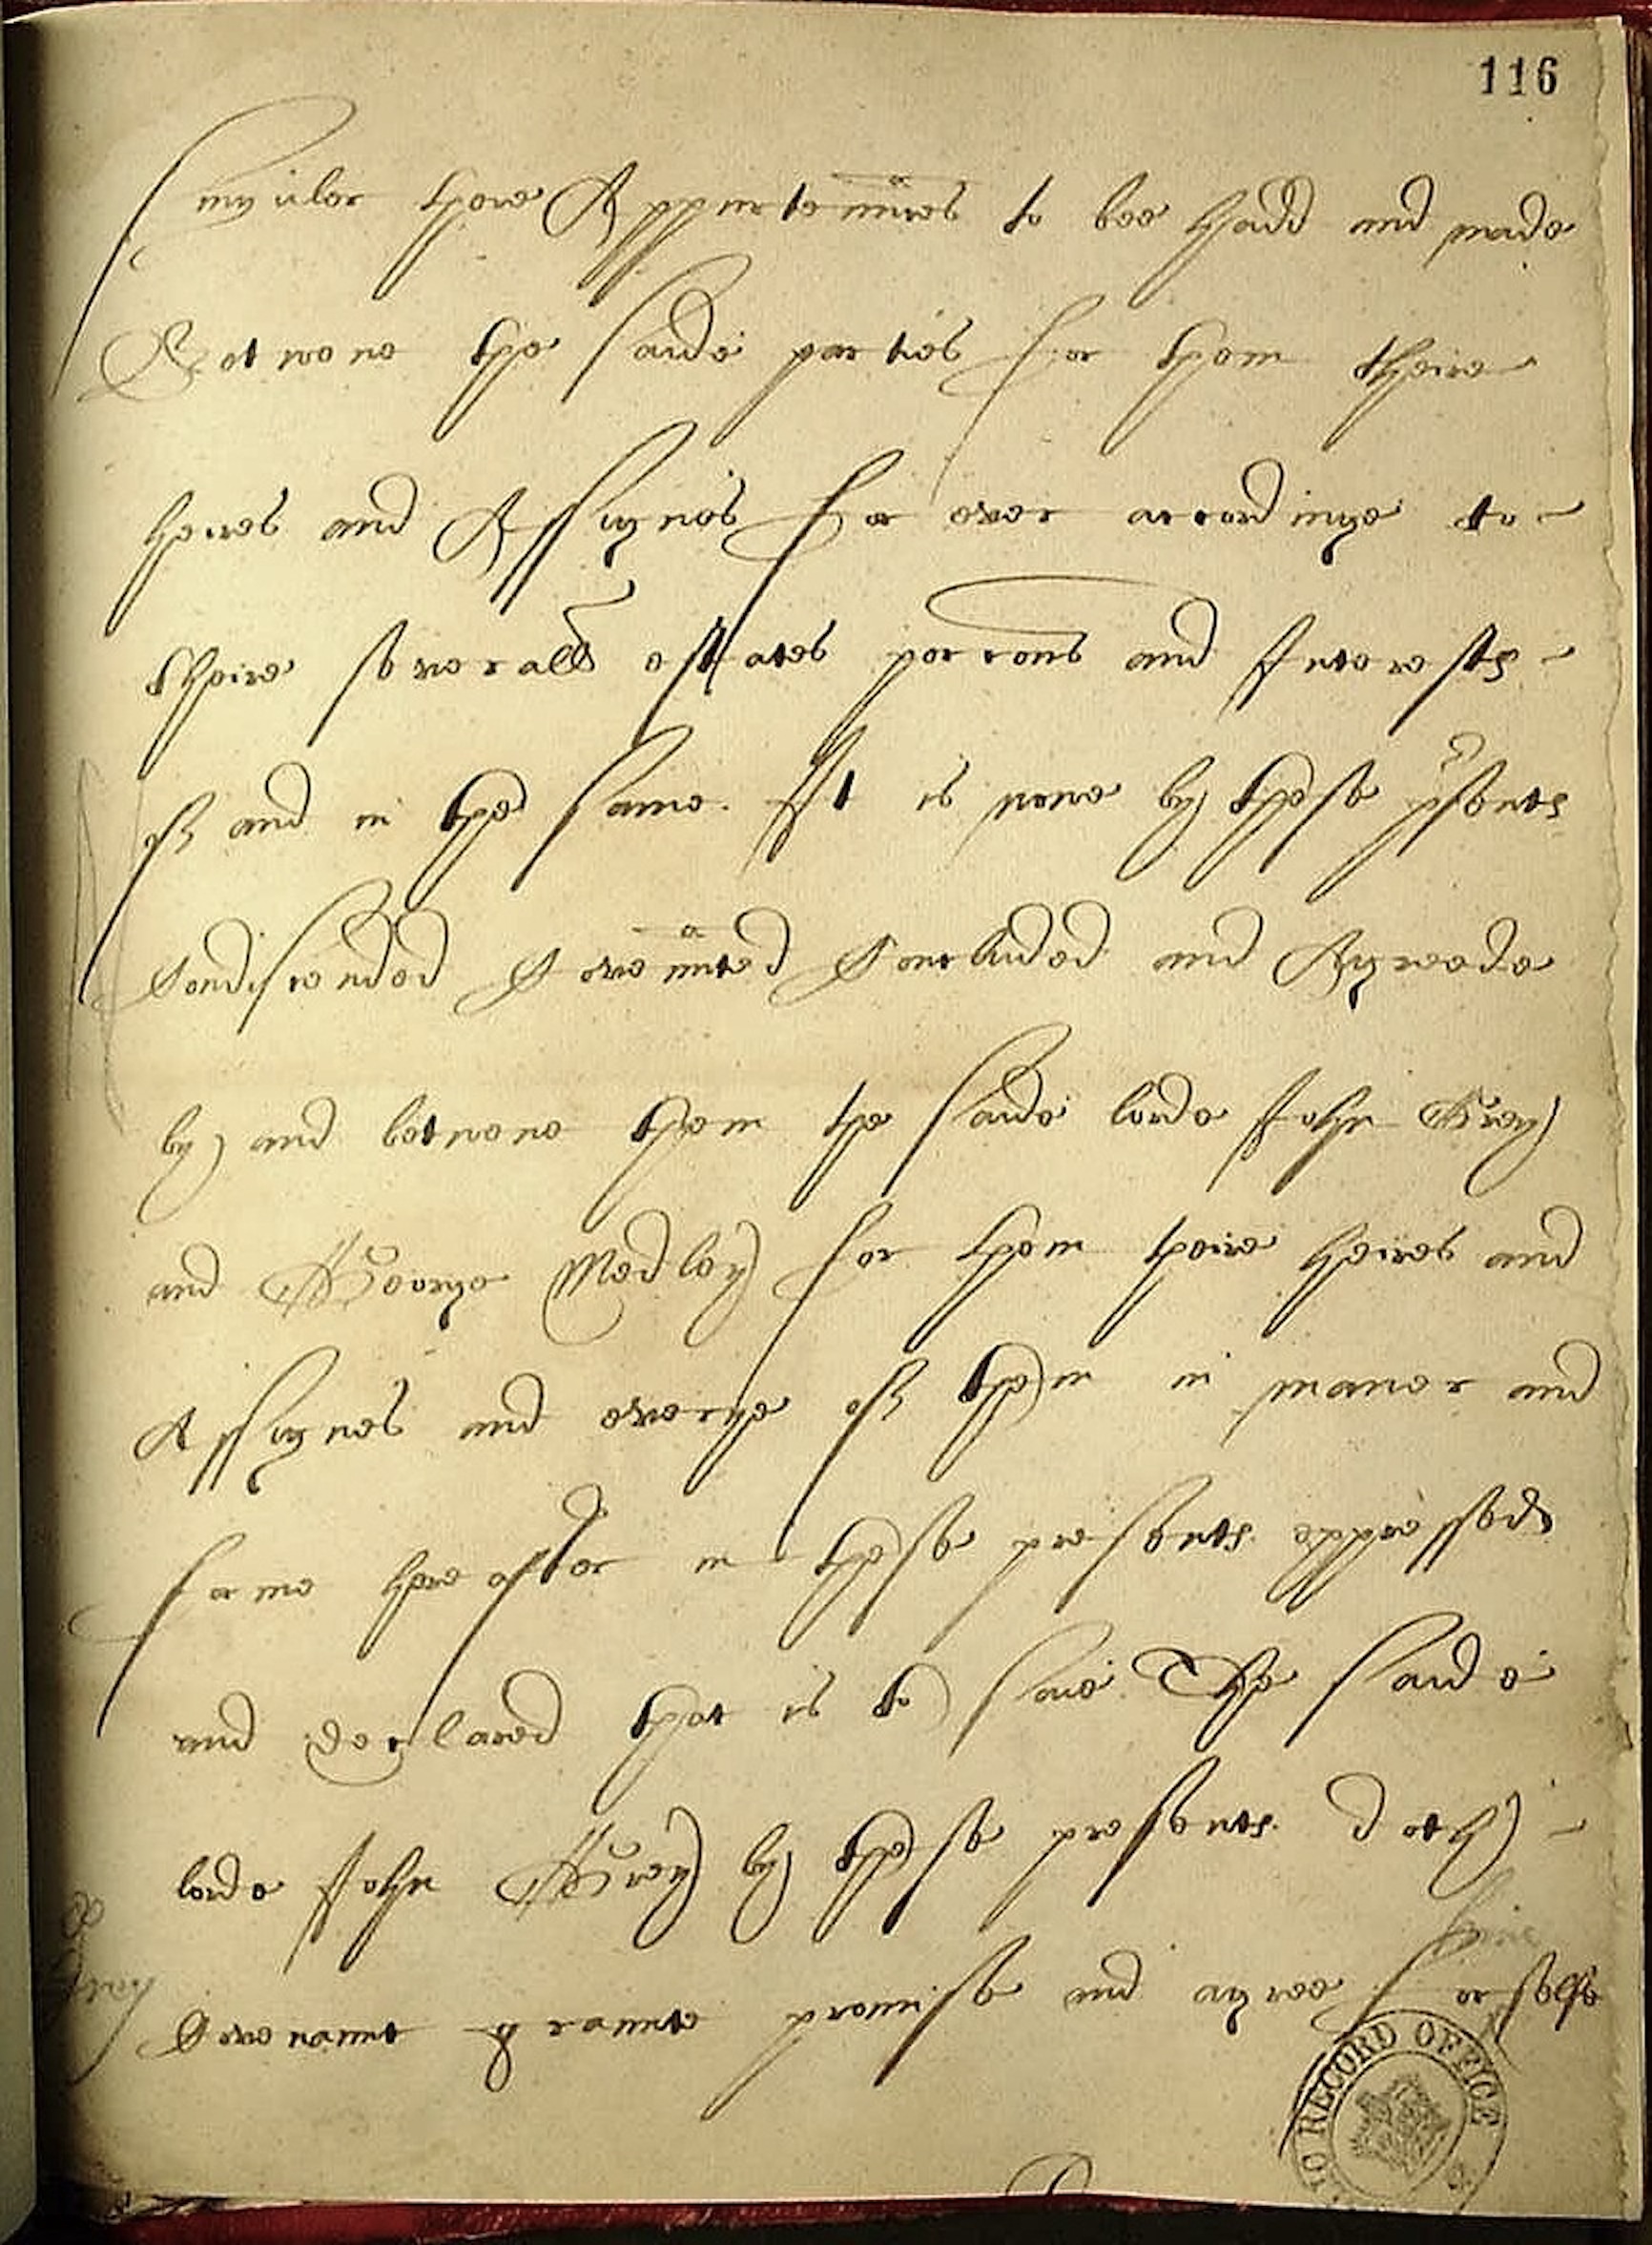 116
synguler there Appurtennces to bee hadd and made
Betwene the saide parties for them theire
heires and Assignes for ever accordinge to
theire severall estates porcons and Interests
of and in the same. It is nowe by these psents
Condiscended Covennted Concluded and Agreede
by and betwene them the saide lorde John Grey
and George Medley for them theire heires and
Assignes and everye of them in maner and
forme hereafter in these presents expressed
and declared that is to saie The saide
lorde John Grey by these presents doth
hime
Grey
Covenannt grannte promise and agree for selfe
RECORD OFFICE